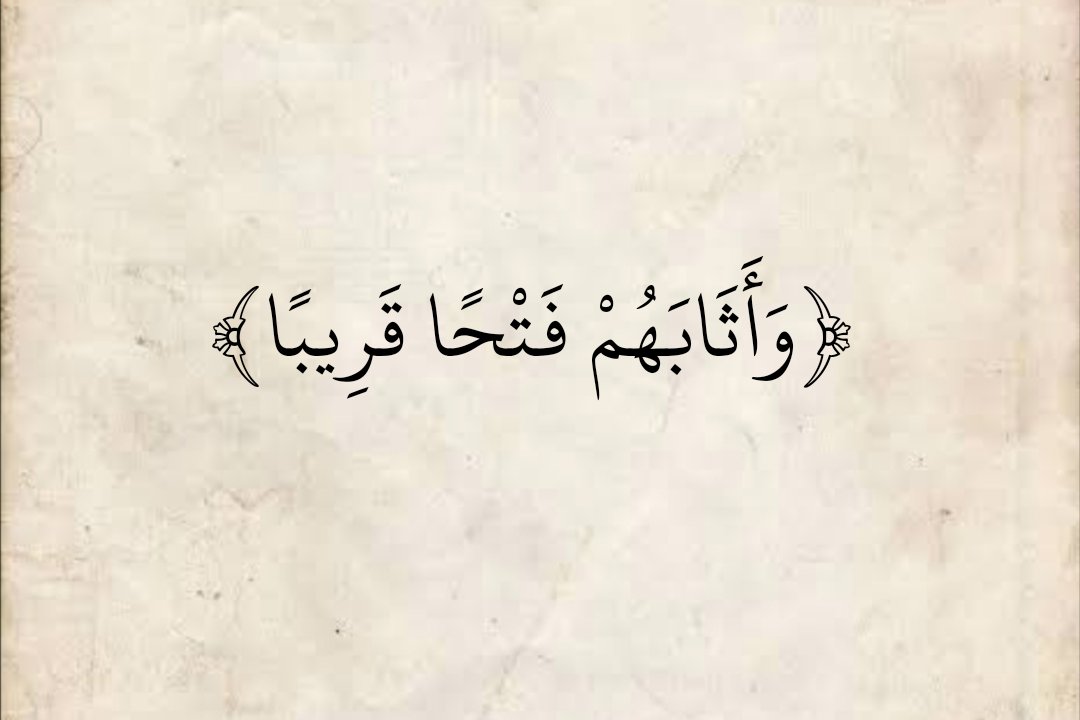 ﴿وَأَثَابَهُمْ فَتْحًا قَرِيبًا﴾